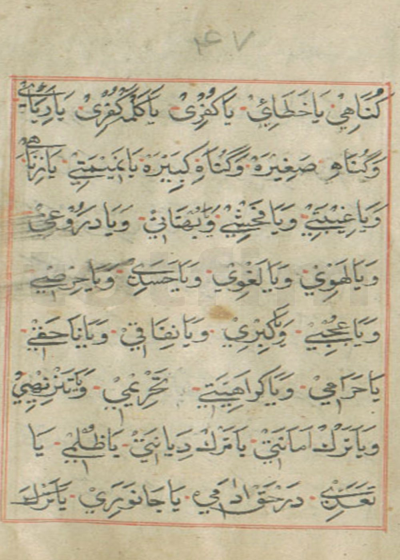 ۴۷
گناهی یا خطائی یا کفری یا کلمه کفری یا ریائی
وگناه صغیره وگناه کبیره یا نمیمتی یا زنائی
ویا غیبتی ویا فحشی وبهتانی ویا دروغی
ویا لهوی ویا لغوی ویا حسدی ویا حرصی
ویا عجبی وکبری ویا نفاقی ویا ناحقی
یا حرامی ویا کراهیتی تحریمی وتنزیهی
ویا ترك امانتی یا ترك دیانتی یا ظلمی یا
تعدی در حق ادمی یا جانوری یا ترك